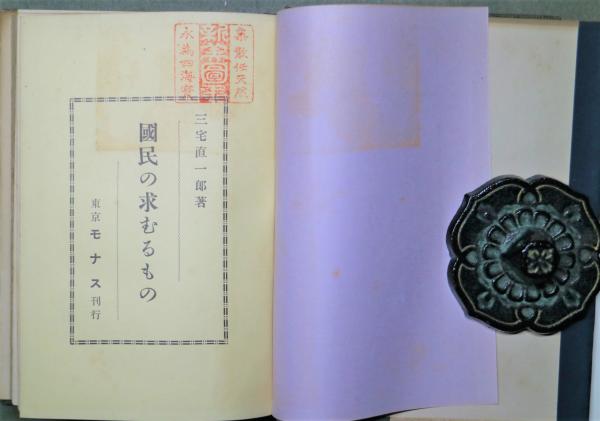 三宅直一郎著
國民の求むるもの
東京 モナス 刊行